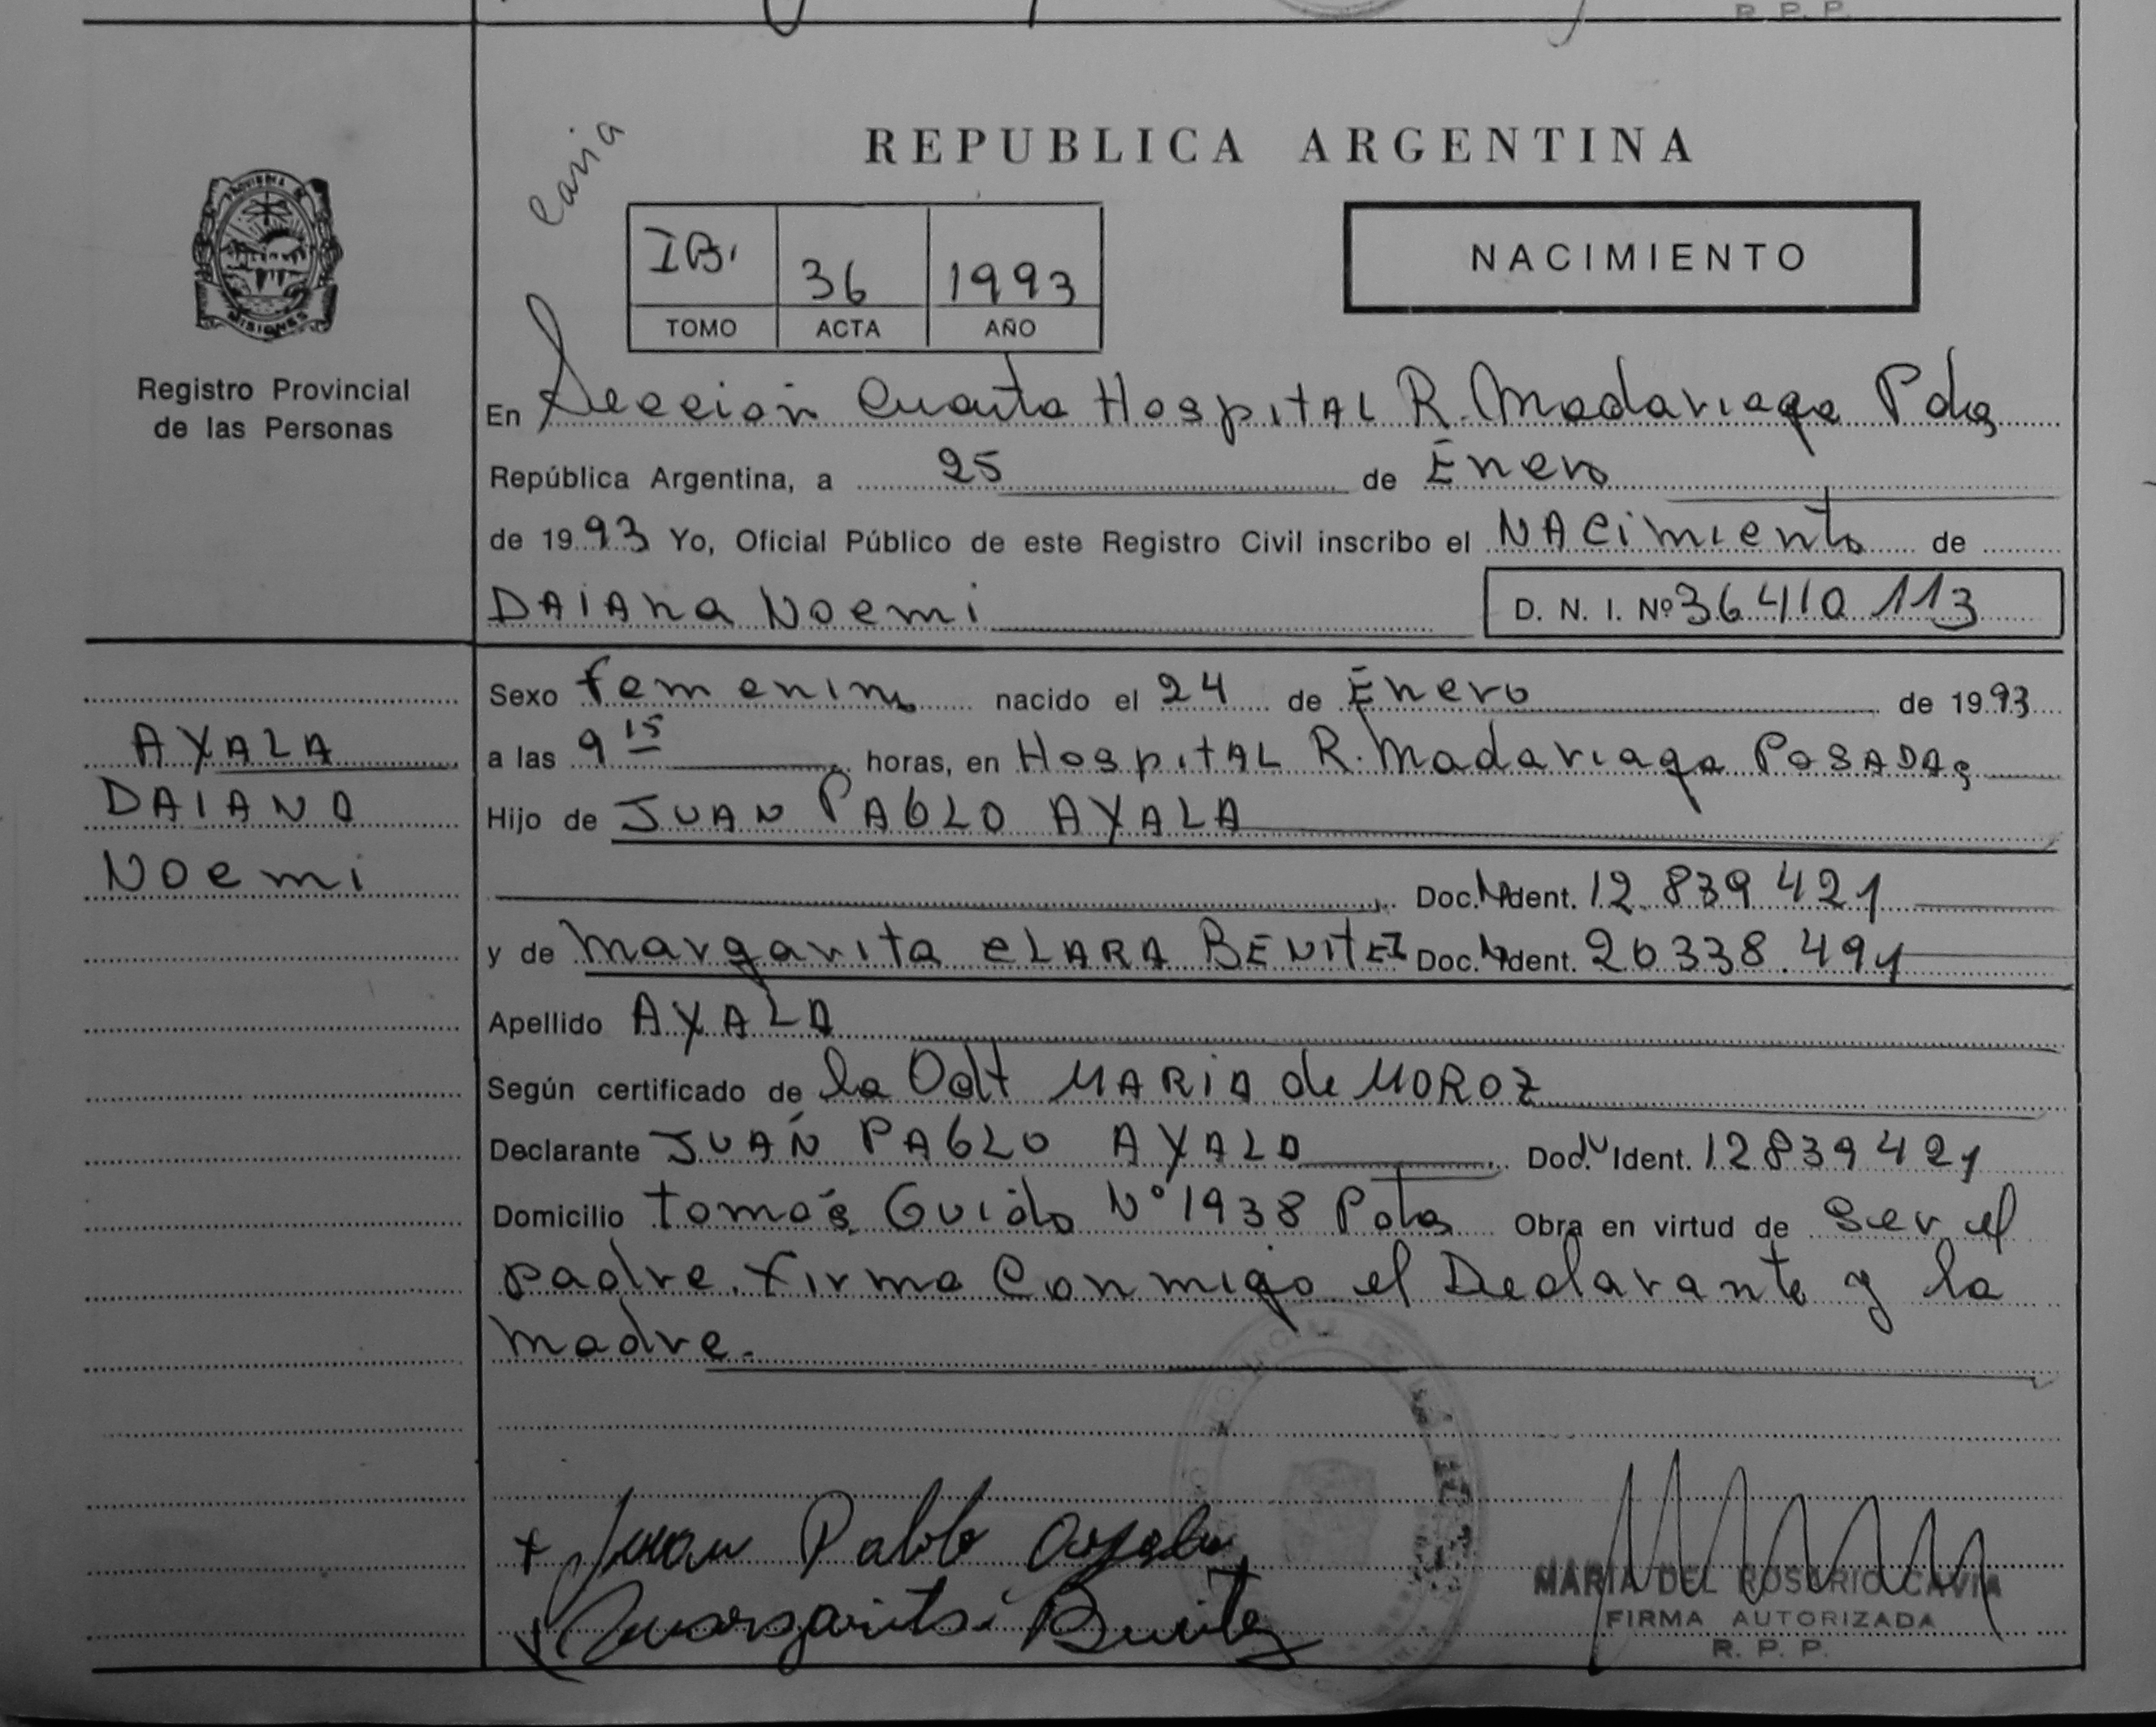 R. P. P.
Cavia
REPUBLICA ARGENTINA
IB. 36 1993
TOMO ACTA AÑO
NACIMIENTO
PROVINCIA DE
MISIONES
Registro Provincial
de las Personas
En Sección Cuarta Hospital R. Madariaga Pdas
República Argentina, a 25 de Enero
de 1993 Yo, Oficial Público de este Registro Civil inscribo el NAcimiento de
DAIAna Noemi D. N. I. Nº 36.410.113
Sexo femenino nacido el 24 de Enero de 1993
AYALA
DAIANA
Noemi
a las 9 15 horas, en HospitAL R. Madariaga POSADAS
Hijo de JUAN PAbLO AYALA
Doc. Ident. 12.839.421
y de Margarita CLARA BENITEZ Doc. Ident. 20.338.491
Apellido AYALA
Según certificado de la Odt MARIA de MOROZ
Declarante JUAN PAbLO AYALA Doc. Ident. 12839421
Domicilio tomás Guido Nº 1938 Pdas Obra en virtud de ser el
padre. firma Conmigo el Declarante y la
madre.
+ Juan Pablo Ayala
Margarita Benitez
MARIA DEL ROSARIO CAVIA
FIRMA AUTORIZADA
R. P. P.